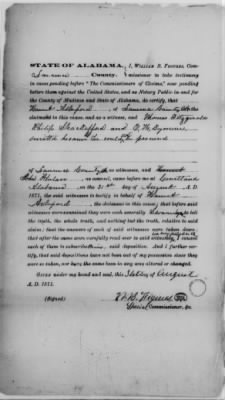 STATE OF ALABAMA, I, WILLIAM B. FIGURES, Com-
County. missioner to take testimony
in cases pending before "The Commissioners of Claims," now pending
before them against the United States, and as Notary Public in and for
the County of Madison and State of Alabama, do certify, that
of Lawrence County, the
claimant in this cause, and as a witness, and Thomas Fitzgerald
Philip Shackelford and
of Lawrence County, as witnesses, and
as counsel, came before me at Courtland
Alabama on the 31st day of August A. D.
1871, the said witnesses to testify in behalf of
the claimant in this cause; that before said
witnesses were examined they were each severally sworn by me to tell
the truth, the whole truth, and nothing but the truth, relative to said
claim; that the answers of each of said witnesses were taken down
that after the same were carefully read over to said witnesses, I caused
each of them to subscribe his said deposition. And I further cer-
tify, that said depositions have not been out of my possession since they
were so taken, nor have the same been in any way altered or changed.
Given under my hand and seal, this 31st day of August
A. D. 1871.
(Signed)
Wm. B. Figures
Special Commissioner, &c.